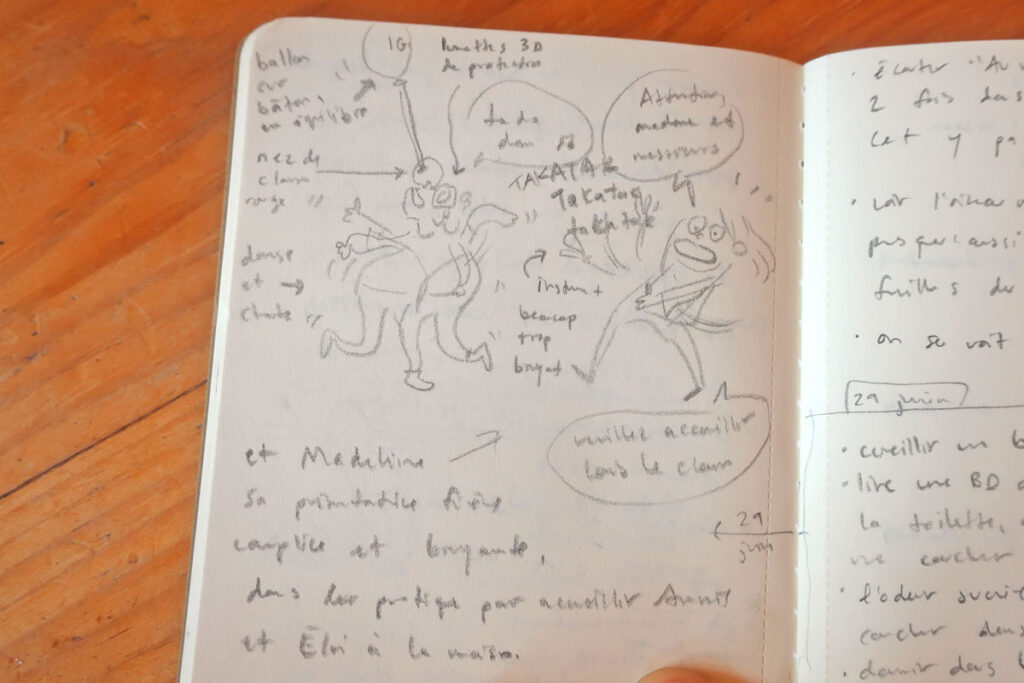 ballon
sur
bâton
en équilibre
10
lunettes 3D
de protection
nez de
clown
rouge
danse
et
chante
ta da
dam
Attention,
madame et
messieurs
TAKATAK
Takatak
takatak
instant
beaucoup
trop
bruyant
veuillez accueillir
le clown
et Madeleine
sa présentatrice fière
complice et bruyante,
dans leur pratique pour accueillir
et Éloi à la maison.
29
juin
écouter "Au
2 fois dans
Cet y pa
voir l'oiseau
puisque aussi
feuilles de
on se voit
29 juin
cueillir un b
lire une BD
la toilette,
me coucher
l'odeur sucrée
coucher dans
dormir dans l